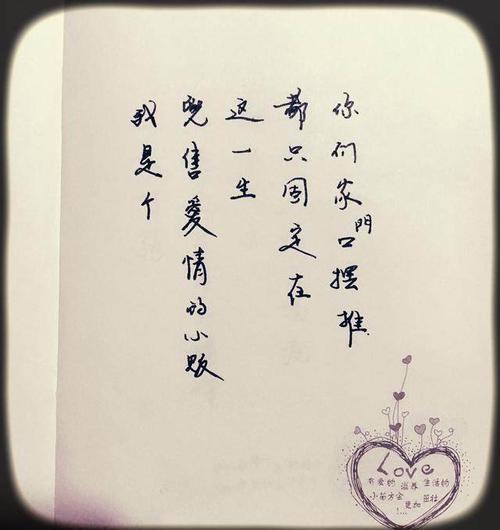 我是个
兜售愛情的小贩
这一生
都只固定在
你们家門口摆摊
Love
有爱的 滋养 生活的
小苗方会 更加 茁壮